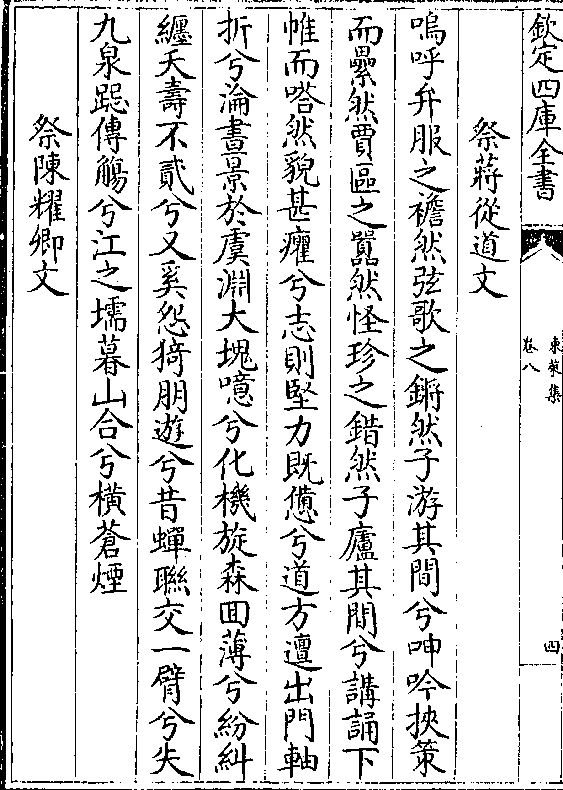 欽定四庫全書
東萊集
卷八
四
祭蔣從道文
嗚呼弁服之襜然弦歌之鏘然子游其間兮呻吟挾策
而纍然賈區之囂然怪珍之錯然子廬其間兮講誦下
帷而嗒然貌甚癯兮志則堅力既憊兮道方邅出門軸
折兮淪晝景於虞淵大塊噫兮化機旋森囬薄兮紛糾
纏夭壽不貳兮又奚怨猗朋遊兮昔蟬聯交一臂兮失
九泉跽傳觴兮江之壖暮山合兮橫蒼煙
祭陳耀卿文